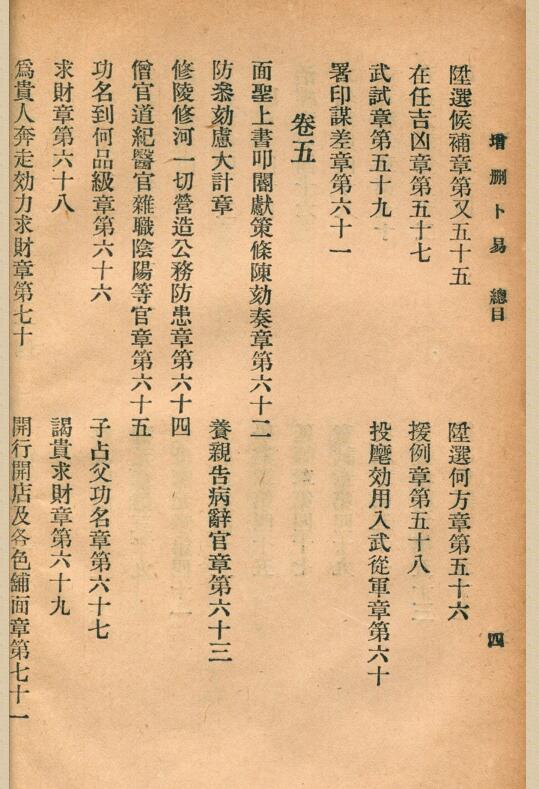 增刪卜易 總目 四
陞選候補章第又五十五 陞選何方章第五十六
在任吉凶章第五十七 援例章第五十八
武試章第五十九 投麾効用入武從軍章第六十
署印謀差章第六十一
卷五
面聖上書叩閽獻策條陳劾奏章第六十二
防叅劾慮大計章 養親告病辭官章第六十三
修陵修河一切營造公務防患章第六十四
僧官道紀醫官雜職陰陽等官章第六十五
功名到何品級章第六十六 子占父功名章第六十七
求財章第六十八 謁貴求財章第六十九
為貴人奔走効力求財章第七十 開行開店及各色鋪面章第七十一